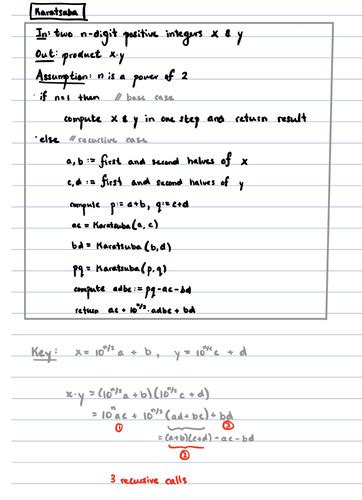 Karatsuba
In: two n-digit positive integers x & y
Out: product x·y
Assumption: n is a power of 2
· if n=1 then // base case
compute x & y in one step and return result
· else // recursive case
a, b := first and second halves of x
c, d := first and second halves of y
compute p := a+b, q := c+d
ac = Karatsuba(a, c)
bd = Karatsuba(b, d)
pq = Karatsuba(p, q)
compute adbc := pq-ac-bd
return ac + 10^n/2 · adbc + bd
Key: x = 10^n/2 a + b, y = 10^n/2 c + d
x·y = (10^n/2 a + b)(10^n/2 c + d)
= 10^n ac + 10^n/2 (ad + bc) + bd
① ②
= (a+b)(c+d) - ac - bd
③
3 recursive calls